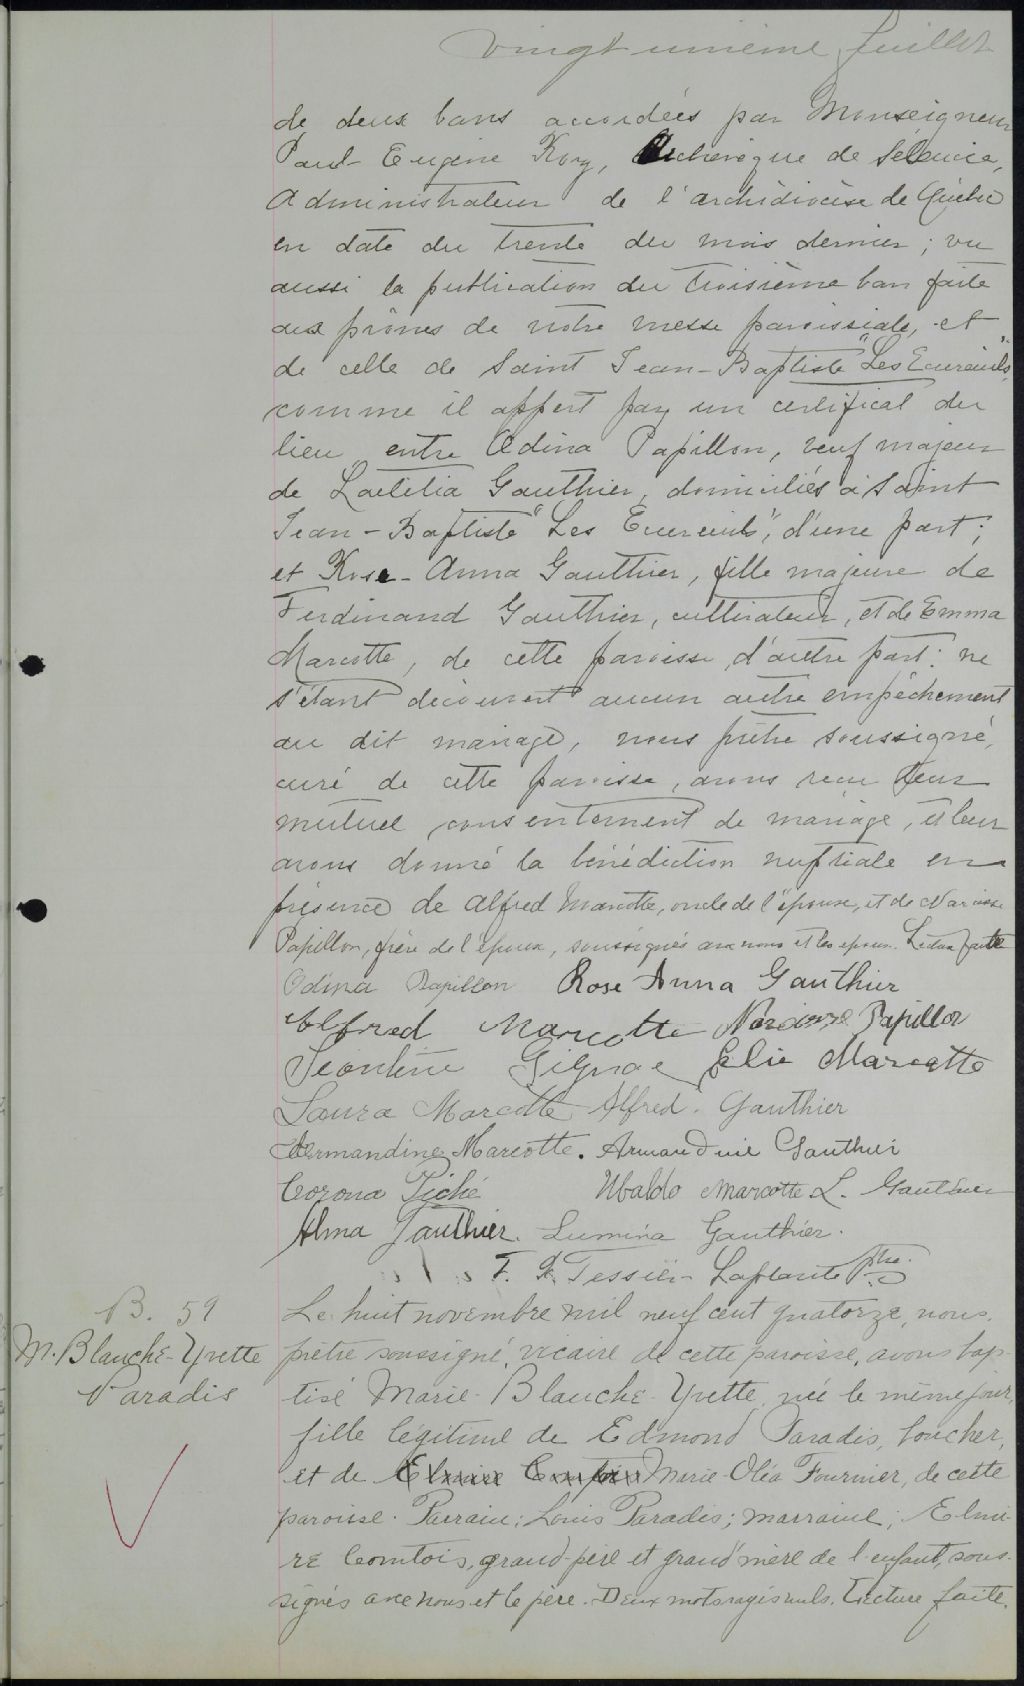 Vingt unième feuillet
de deux bans accordées par Monseigneur
Paul-Eugène Roy, Archevêque de Séleucie,
Administrateur de l'archidiocèse de Québec
en date du trente du mois dernier ; vu
aussi la publication du troisième ban faite
aux prônes de notre messe paroissiale, et
de celle de Saint Jean-Baptiste "Les Ecureuils",
comme il appert par un certificat du
lieu entre Odina Papillon, veuf majeur
de Laetitia Gauthier, domiciliés à Saint
Jean-Baptiste "Les Ecureuils", d'une part ;
et Rose-Anna Gauthier, fille majeure de
Ferdinand Gauthier, cultivateur, et de Emma
Marcotte, de cette paroisse, d'autre part : ne
s'étant découvert aucun autre empêchement
au dit mariage, nous prêtre soussigné,
curé de cette paroisse, avons reçu leur
mutuel consentement de mariage, et leur
avons donné la bénédiction nuptiale en
présence de Alfred Marcotte, oncle de l'épouse, et de Narcisse
Papillon, frère de l'époux, soussignés avec nous et les époux. Lecture faite
Odina Papillon Rose Anna Gauthier
Alfred Marcotte Narcisse Papillon
Léontine Gignac Elie Marcotte
Laura Marcotte Alfred. Gauthier
Hermandine Marcotte. Armandine Gauthier
Corona Piché Ubaldo Marcotte L. Gauthier
Alma Gauthier. Lumina Gauthier.
F. X. Tessier-Laplante Ptre.
B. 59
M. Blanche-Yvette
Paradis
Le huit novembre mil neuf cent quatorze, nous,
prêtre soussigné, vicaire de cette paroisse, avons bap-
tisé Marie-Blanche-Yvette, née le même jour,
fille légitime de Edmond Paradis, boucher,
et de Elmire Comtois Marie-Oléa Fournier, de cette
paroisse. Parrain : Louis Paradis ; marraine ; Elmi-
re Comtois, grand-père et grand'mère de l'enfant, sous-
signés avec nous et le père. Deux mots rayés nuls. Lecture faite.